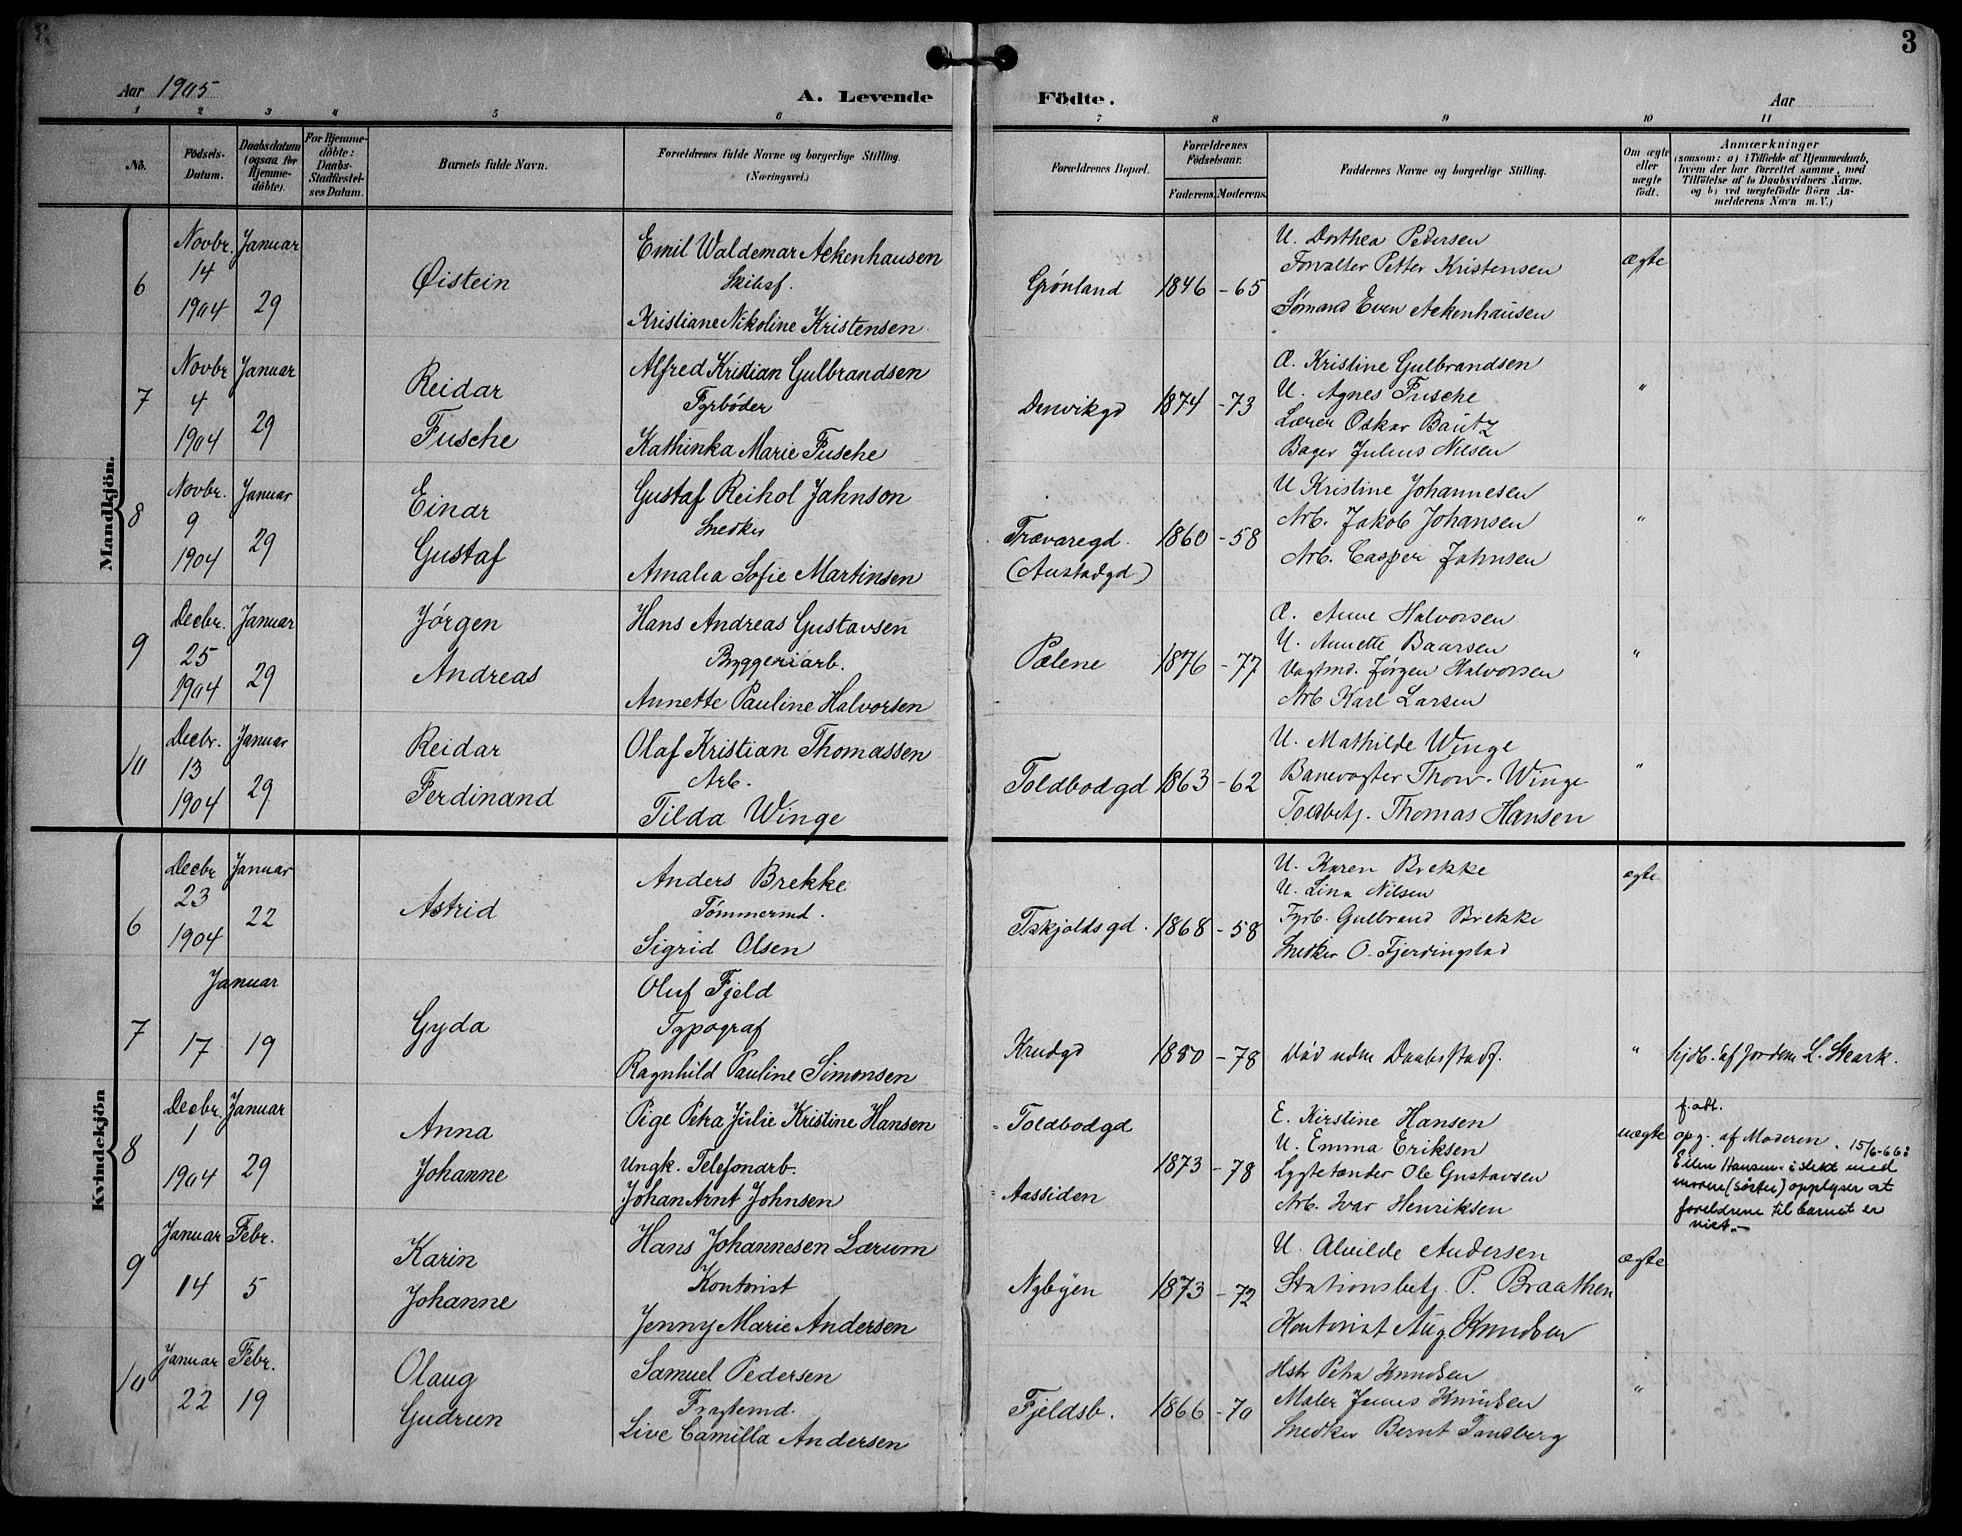 3
Aar 1905
A. Levende Födte.
Aar
1 2 3 4 5 6 7 8 9 10 11
No.
Födsels-Datum.
Daabsdatum (ogsaa for Hjemme-döbte).
For Hjemme-döbte: Daabs-Stadfæstel-ses Datum.
Barnets fulde Navn.
Forældrenes fulde Navne og borgerlige Stilling.
(Næringsvei.)
Forældrenes Bopæl.
Forældrenes Födselsaar.
Faderens. Moderens.
Faddernes Navne og borgerlige Stilling.
Om ægte eller uægte födt.
Anmærkninger
(saasom: a) i Tilfælde af Hjemmedaab,
hvem der har forrettet samme, med
Tilföielse af to Daabsvidners Navne,
og b) ved uægtefödte Börn An-
melderens Navn m. V.)
Mandkjön.
6
Novbr. 14 1904
Januar 29
Øistein
Emil Waldemar Ackenhausen
Skibsf.
Kristiane Nikoline Kristensen
Grønland
1846 - 65
U. Dorthea Pedersen
Forvalter Petter Kristensen
Sømand Even Ackenhausen
ægte
7
Novbr 4 1904
Januar 29
Reidar
Fusche
Alfred Kristian Gulbrandsen
Fyrbøder
Kathinka Marie Fusche
Danvikgd
1874 - 73
Æ. Kristine Gulbrandsen
U. Agnes Fusche
Lærer Oskar Bautz
Bager Julius Nilsen
"
8
Novbr. 9 1904
Januar 29
Einar
Gustaf
Gustaf Reihol Jahnson
Snedker
Amalia Sofie Martinsen
Trævaregd.
(Austadgd)
1860 - 58
U Kristine Johannesen
Arb. Jakob Johansen
Arb. Casper Jahnsen
"
9
Decbr. 25 1904
Januar 29
Jørgen
Andreas
Hans Andreas Gustavsen
Byggeriarb.
Annette Pauline Halvorsen
Pælene
1876 - 77
Æ. Anne Halvorsen
U. Annette Baarsen
Vagtmd. Jørgen Halvorsen
Arb Karl Larsen
"
10
Decbr. 13 1904
Januar 29
Reidar
Ferdinand
Olaf Kristian Thomassen
Arb.
Tilda Winge
Toldbodgd
1863 - 62
U. Mathilde Winge
Banevogter Thorv. Winge
Toldbetj. Thomas Hansen
"
Kvindekjön
6
Decbr 23 1904
Januar 22
Astrid
Anders Brekke
Tømmermd.
Sigrid Olsen
1868 - 58
U. Karen Brekke
U. Lina Nilsen
Fyrb. Gulbrand Brekke
Snedker O. Fjerdingstad
ægte
7
Januar
17 19
Gyda
Oluf Fjeld
Typograf
Ragnhild Pauline Simonsen
Krudgd
1880 - 78
Død uden Daabsstadf.
"
hjdb. af Jordem L. Skark.
8
Decbr. 1 1904
Januar 29
Anna
Johanne
Pige Petra Julie Kristine Hansen
Ungk. Telefonarb.
Johan Arnt Johnsen
Toldbodgd
Aassiden
1873 - 78
E. Kirstine Hansen
U. Emma Eriksen
Lygtetænder Ole Gustavsen
Arb. Ivar Henriksen
uægte
f. att.
opg. af Moderen. 15/6-66:
Ellen Hansen i slekt med
moren (søster) opplyser at
foreldrene til barnet er
viet.-
9
Januar 14
Febr. 5
Karin
Johanne
Hans Johannesen Lærum
Kontorist
Jenny Marie Andersen
Nybyen
1873 - 72
U. Alvilde Andersen
Stationsbetj. P. Braathen
Kontorist Aug. Knudsen
ægte
10
Januar 22
Febr. 19
Olaug
Gudrun
Samuel Pedersen
Fragtemd.
Live Camilla Andersen
Fjeldsb.
1866 - 70
Hstr Petra Knudsen
Maler Jonas Knudsen
Snedker Bernt Tønsberg
"